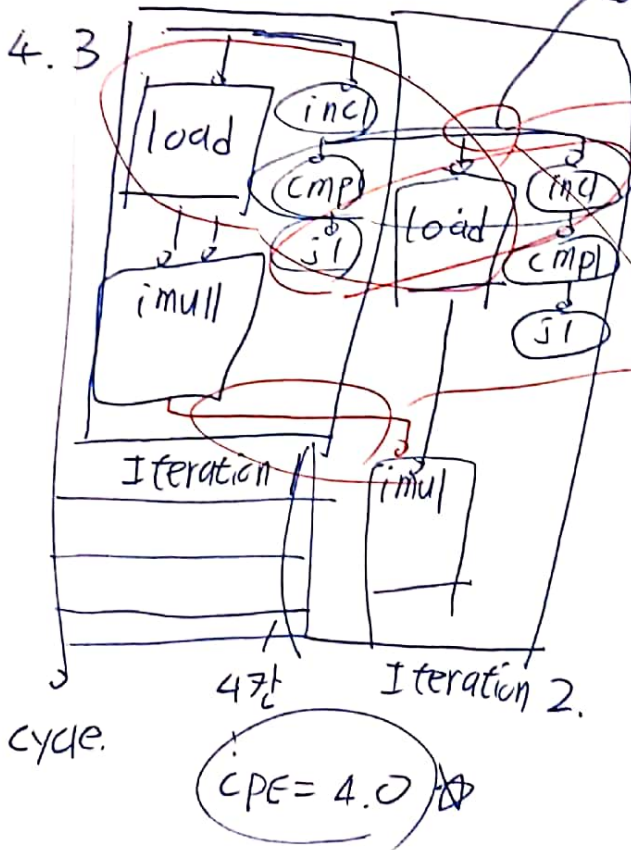 4.3
load
incl
cmpl
jl
imull
load
incl
cmpl
jl
imul
Iteration
4칸
Iteration 2.
cycle.
CPE = 4.0